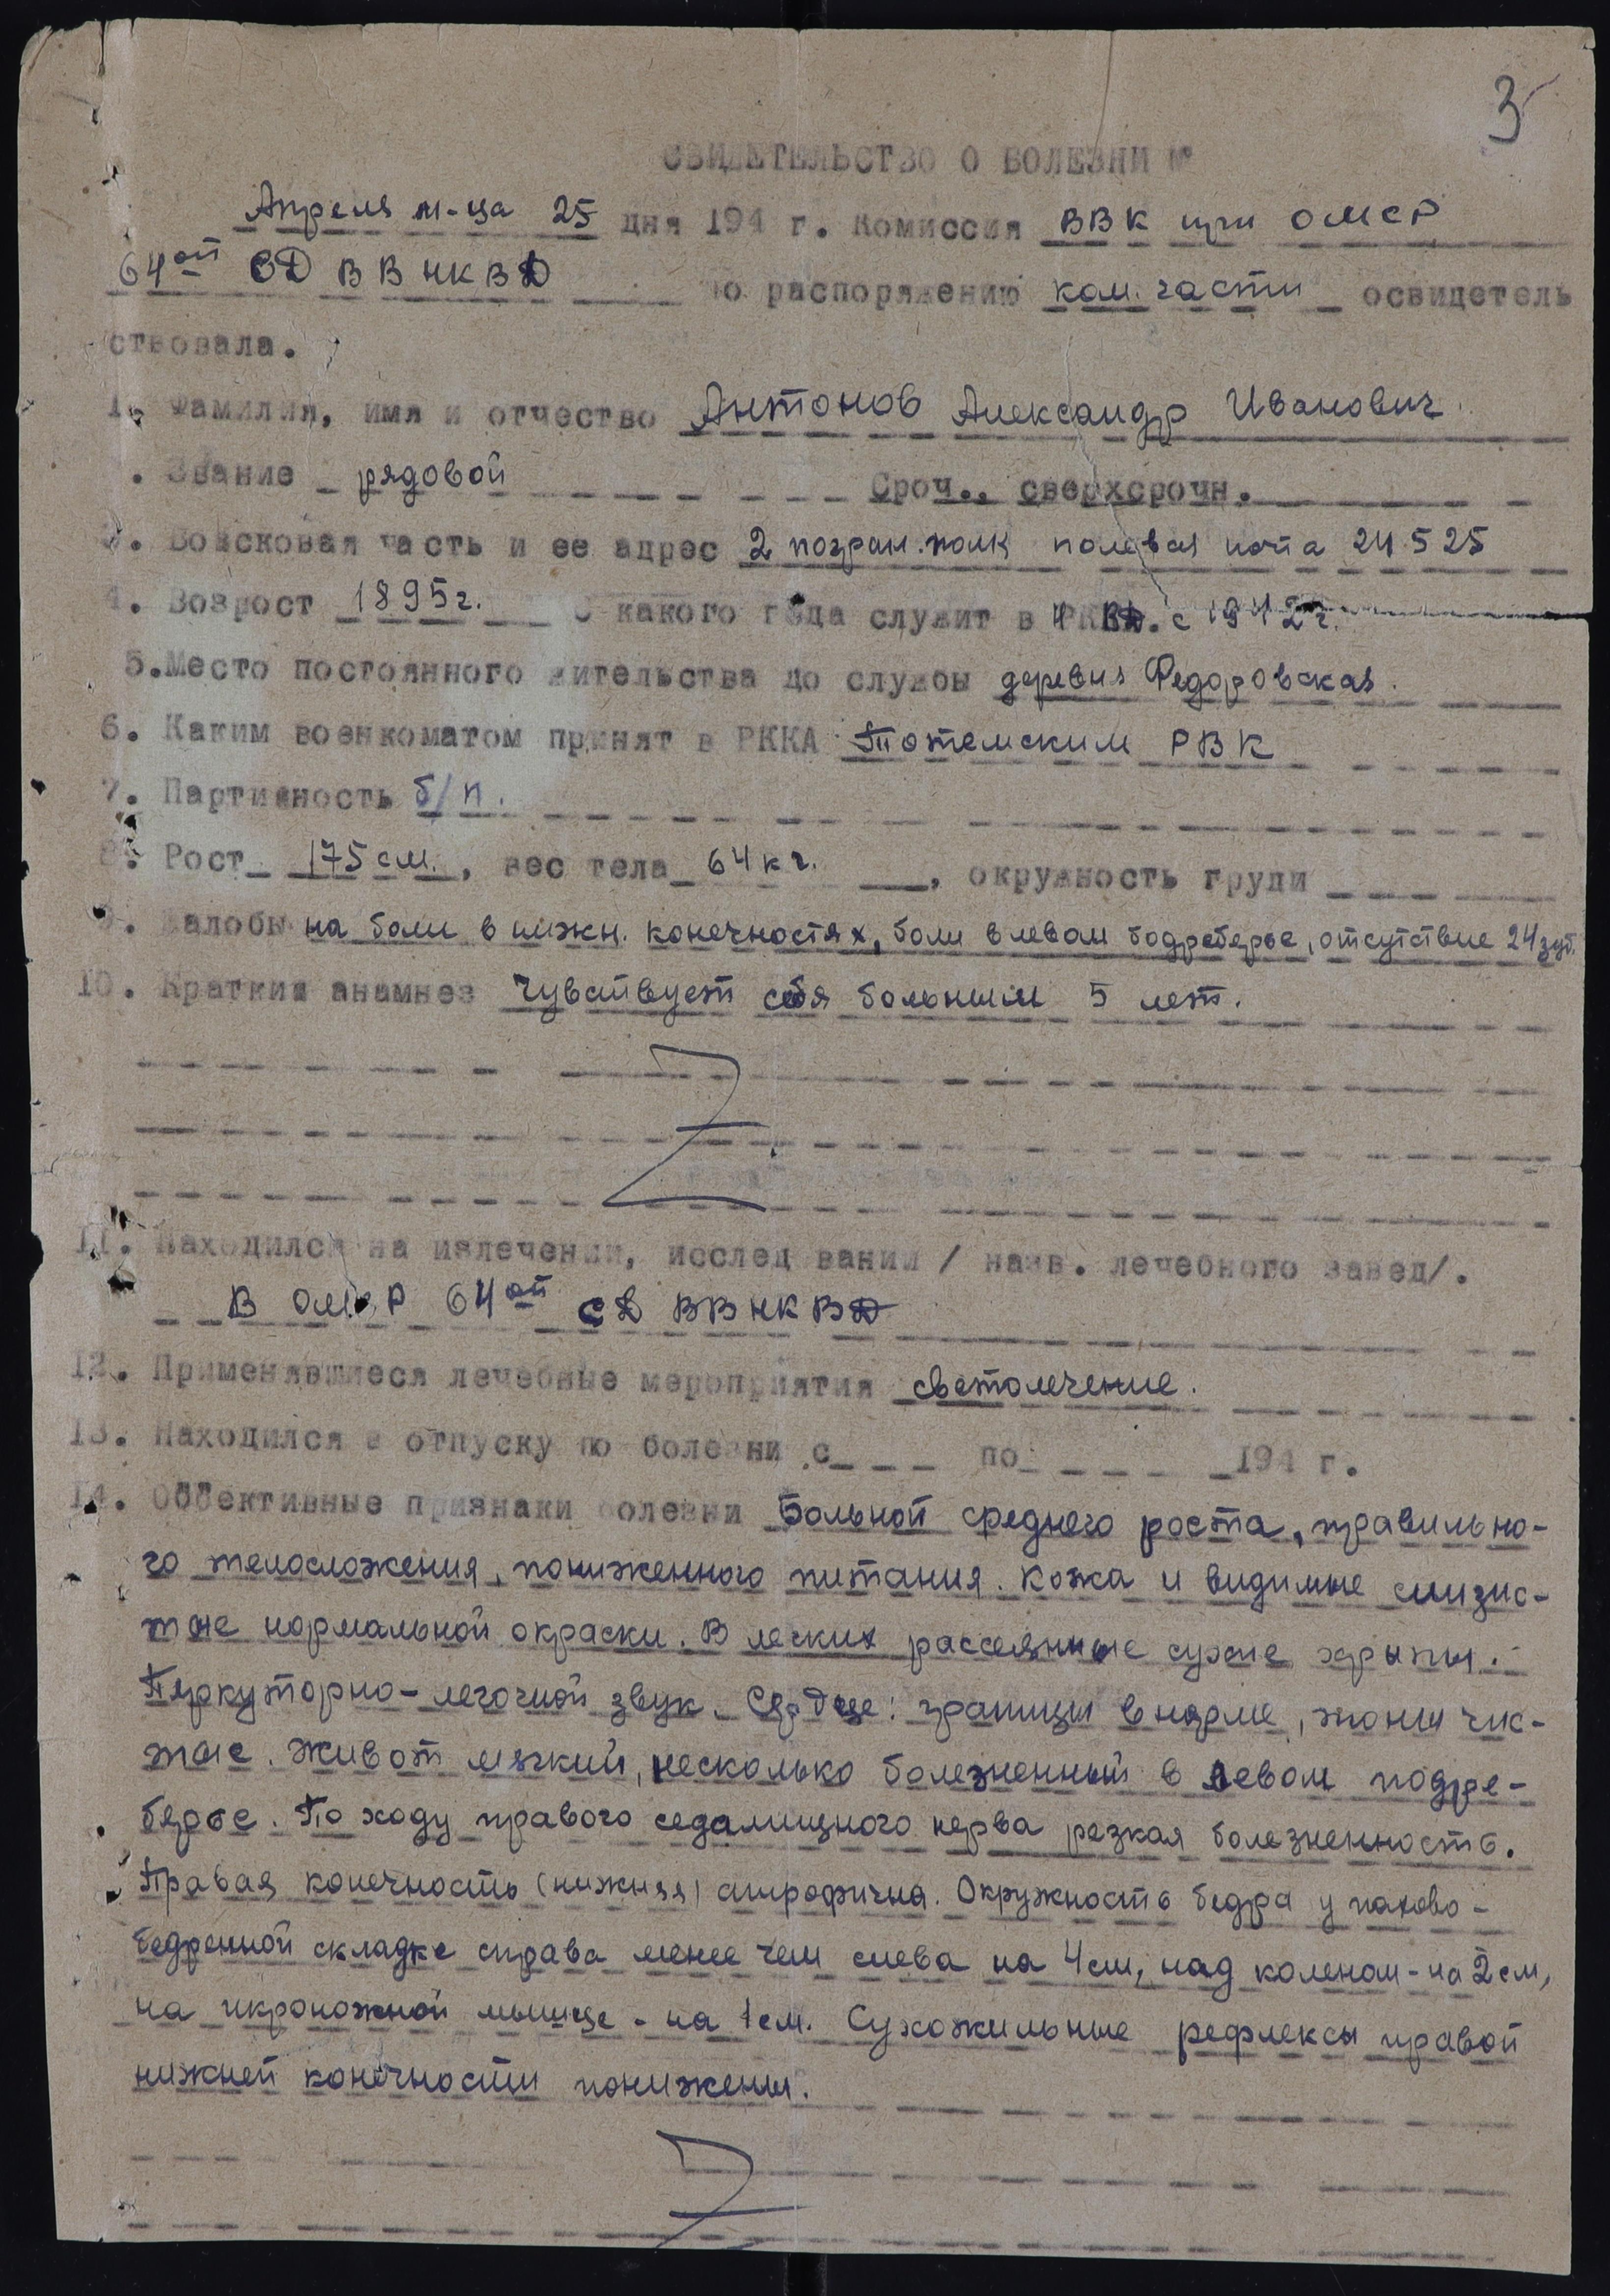 3
СВИДЕТЕЛЬСТВО О БОЛЕЗНИ №
Апреля м-ца 25 дня 194 г. Комиссия ВВК при ОМСР
64ой СД ВВ НКВД по распоряжению ком. части освидетель
ствовала.
1. Фамилия, имя и отчество Антонов Александр Иванович.
. Звание рядовой Сроч., сверхсрочн.
3. Войсковая часть и ее адрес 2 погран. полк полевая почта 24525
4. Возрост 1895г. С какого года служит в РККА. с 1942г.
5. Место постоянного жительства до службы деревня Федоровская.
6. Каким военкоматом принят в РККА Тотемским РВК
7. Партийность б/п.
8. Рост 175 см., вес тела 64 кг., окружность груди
9. Жалобы на боли в нижн. конечностях, боли в левом подреберье, отсутствие 24 зуб.
10. Краткий анамнез Чувствует себя больным 5 лет.
11. Находился на излечении, исслед вании / назв. лечебного завед/.
В ОМСР 64ой СД ВВ НКВД
12. Применявшиеся лечебные мероприятия светолечение.
13. Находился в отпуску по болезни с по 194 г.
14. Объективные признаки болезни Больной среднего роста, правильно-
го телосложения, пониженного питания. Кожа и видимые слизис-
тые нормальной окраски. В легких рассеянные сухие хрыпы.
Перкуторно - легочной звук. Сердце: границы в норме, тоны чис-
тые. Живот мягкий, несколько болезненный в левом подре-
берье. По ходу правого седалищного нерва резкая болезненность.
Правая конечность (нижняя) атрофична. Окружность бедра у пахово-
бедренной складке справа менее чем слева на 4 см, над коленом - на 2 см,
на икроножной мышце - на 1 см. Сухожильные рефлексы правой
нижней конечности понижены.